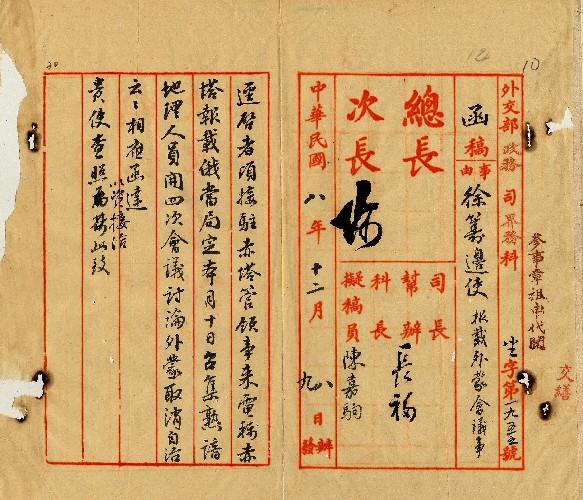 外交部政務司界務科
坐字第一九五五號
參事章祖申代閱
交繕
函稿
事由
徐籌邊使 報載外蒙會議事
總長
次長
司長
幫辦
科長
擬稿員 陳嘉駒
中華民國八年十二月
八日辦
九日發
逕啓者頃接駐赤塔管領事來電稱赤
塔報載俄當局定本月十日召集熟諳
地理人員開四次會議討論外蒙取消自治
云云相應函達
貴使查照為荷此致
10
20